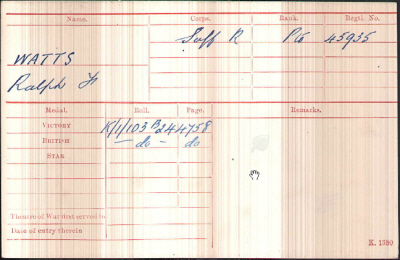 Name. Corps. Rank. Regtl. No.
Suff R Pte 45935
WATTS
Ralph
Medal. Roll. Page. Remarks.
VICTORY K/1/103 B24 4758
BRITISH — do — do
STAR
Theatre of War first served in
Date of entry therein
K. 1380